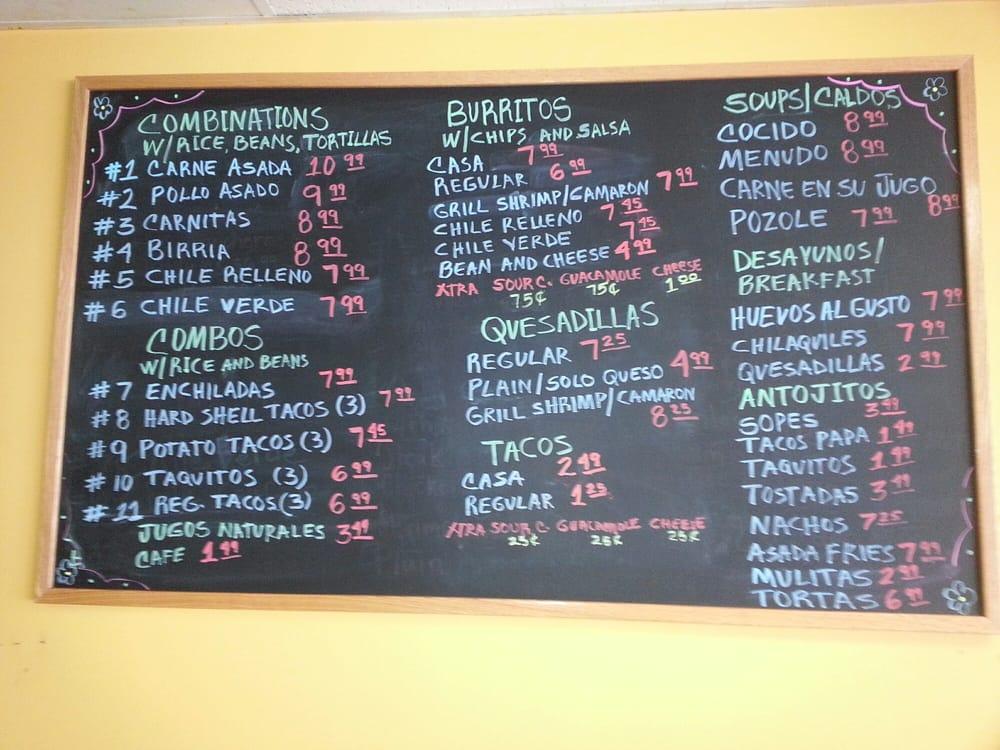 COMBINATIONS
W/RICE, BEANS, TORTILLAS
#1 CARNE ASADA 10 99
#2 POLLO ASADO 9 99
#3 CARNITAS 8 99
#4 BIRRIA 8 99
#5 CHILE RELLENO 7 99
#6 CHILE VERDE 7 99
COMBOS
W/RICE AND BEANS
#7 ENCHILADAS 7 99
#8 HARD SHELL TACOS (3) 7 99
#9 POTATO TACOS (3) 7 45
#10 TAQUITOS (3) 6 99
#11 REG. TACOS (3) 6 99
JUGOS NATURALES 3 49
CAFE 1 99
BURRITOS
W/CHIPS AND SALSA
CASA 7 99
REGULAR 6 99
GRILL SHRIMP/CAMARON 7 99
CHILE RELLENO 7 45
CHILE VERDE 7 45
BEAN AND CHEESE 4 99
XTRA SOUR C. GUACAMOLE CHEESE
75¢ 75¢ 1 00
QUESADILLAS
REGULAR 7 25
PLAIN/SOLO QUESO 4 99
GRILL SHRIMP/CAMARON
8 25
TACOS
CASA 2 49
REGULAR 1 25
XTRA SOUR C. GUACAMOLE CHEESE
25¢ 25¢ 25¢
SOUPS/CALDOS
COCIDO 8 99
MENUDO 8 99
CARNE EN SU JUGO
8 99
POZOLE 7 99
DESAYUNOS/
BREAKFAST
HUEVOS AL GUSTO 7 99
CHILAQUILES 7 99
QUESADILLAS 2 99
ANTOJITOS
SOPES 3 99
TACOS PAPA 1 49
TAQUITOS 1 99
TOSTADAS 3 49
NACHOS 7 25
ASADA FRIES 7 99
MULITAS 2 99
TORTAS 6